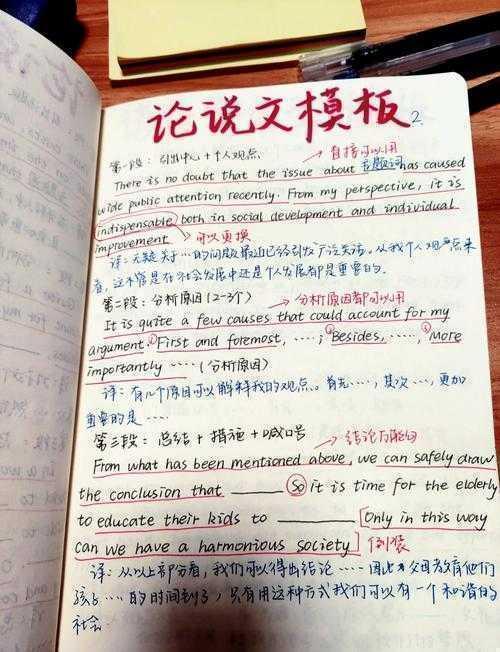 论说文模板 2
第一段：引出中心 + 个人观点 → 直接可以用
There is no doubt that the issue about 主题词 has caused
wide public attention recently. From my perspective, it is
indispensable both in social development and individual
improvement → 可以更换
译：无疑关于…的问题最近已经引发广泛关注。从我个人观点来
看，这不管是在社会发展中还是个人发展都是重要的。
第二段：分析原因(2-3个) → 分析原因都可以用
It is quite a few causes that could account for my
argument. ① First and foremost, ……; ② Besides, ……, ③ More
importantly ……(分析原因)
译：有几个原因可以解释我的观点。首先…，其次…，更加
重要的是……
第三段：总结 + 措施 + 喊口号 → 结论万能句
From what has been mentioned above, we can safely draw
the conclusion that ______ So it is time for the elderly
to educate their kids to ______ [Only in this way
can we have a harmonious society] 倒装
译：从以上部分看，我们可以得出结论……因此父母教育他们
孩子……的时间到了，只有用这种方式我们可以有一个和谐的
社会